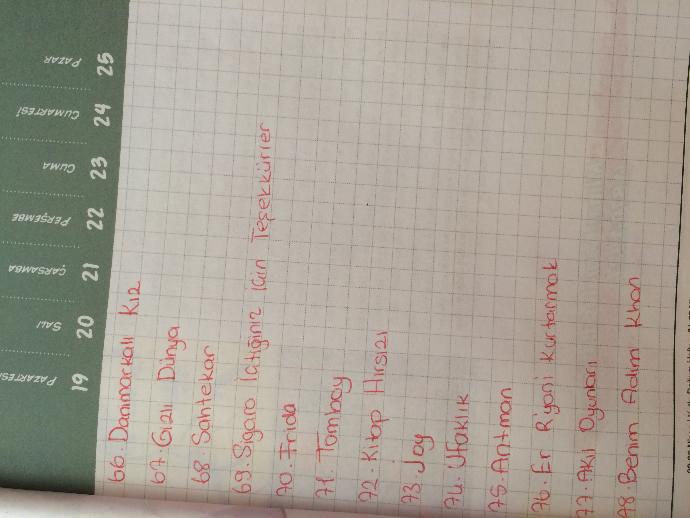 PAZARTESİ 19
SALI 20
ÇARŞAMBA 21
PERŞEMBE 22
CUMA 23
CUMARTESİ 24
PAZAR 25
66. Danimarkalı Kız
67. Gizli Dünya
68. Sahtekar
69. Sigara İçtiğiniz İçin Teşekkürler
70. Frida
71. Tomboy
72. Kitap Hırsızı
73. Joy
74. Ufaklık
75. Antman
76. Er Ryanı Kurtarmak
77. Akıl Oyunları
78. Benim Adım Khan